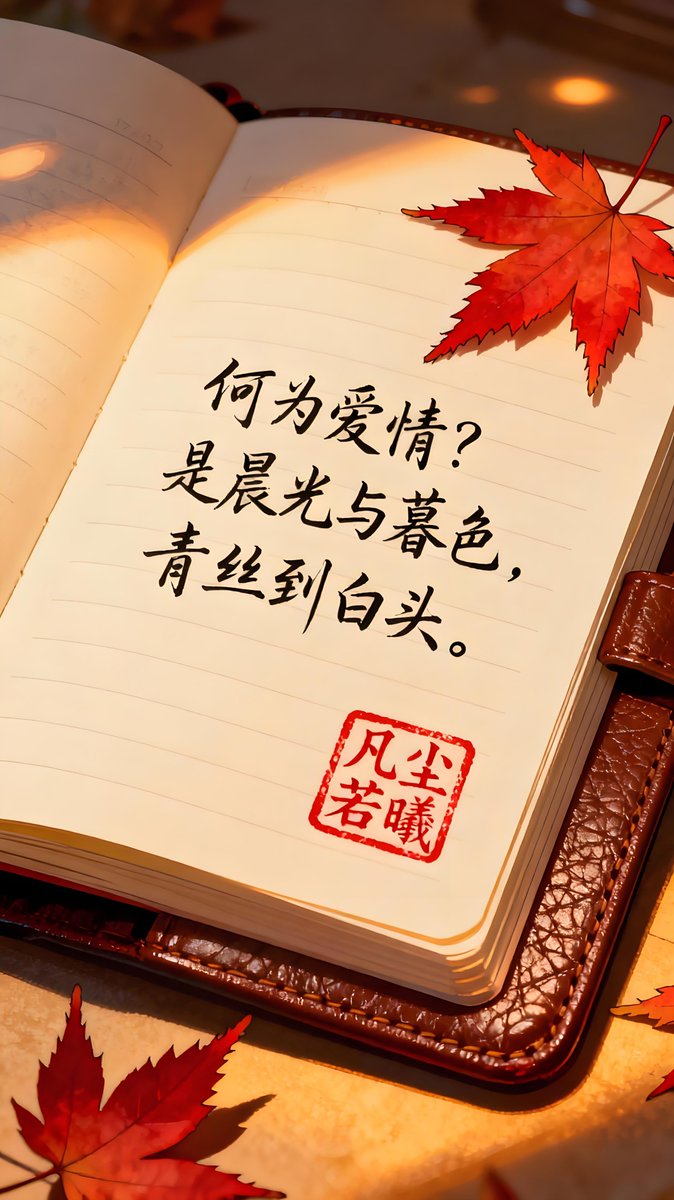 何为爱情？
是晨光与暮色，
青丝到白头。
凡尘
若曦